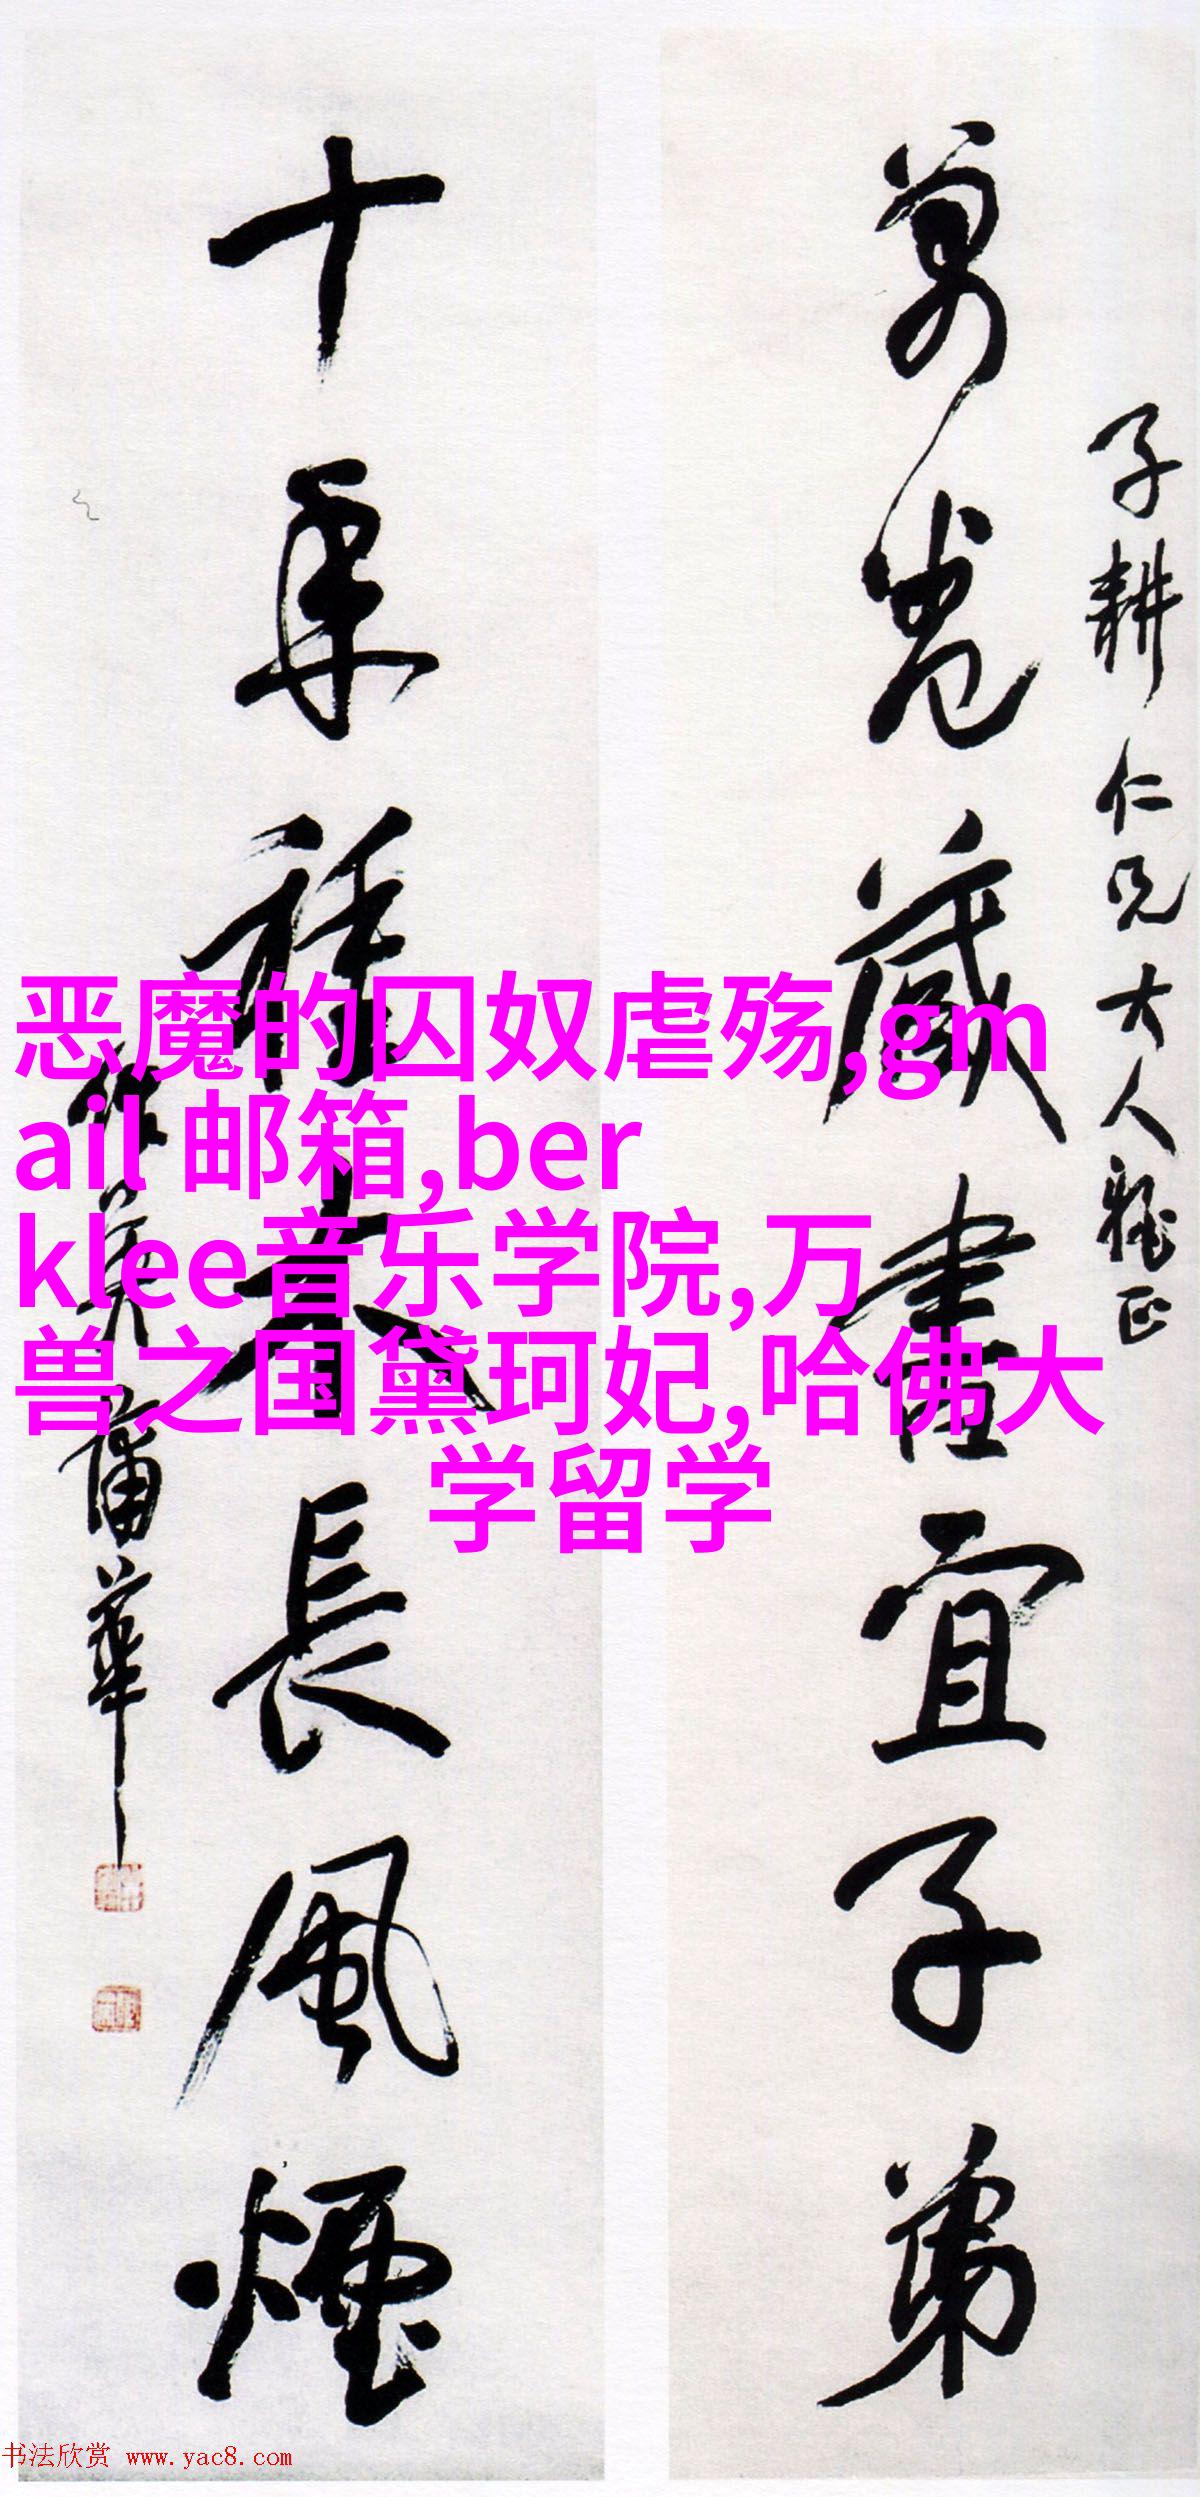 子耕仁兄大人雅正
萬卷藏書宜子弟
十年種木長風煙
作英蒲華
恶魔的囚奴虐殇,gm
ail 邮箱,ber
klee音乐学院,万
兽之国黛珂妃,哈佛大
学留学
书法欣赏 www.yac8.com